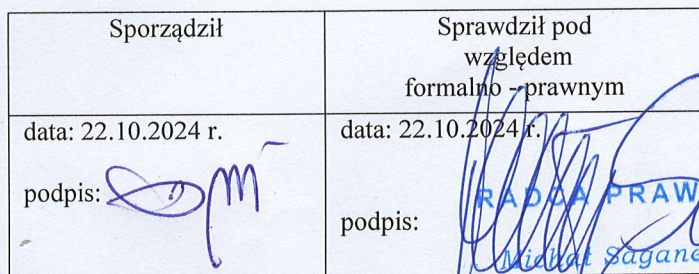 Sporządził
Sprawdził pod
względem
formalno - prawnym
data: 22.10.2024 r.
podpis:
data: 22.10.2024 r.
podpis:
RADCA PRAW
Michał Sagane